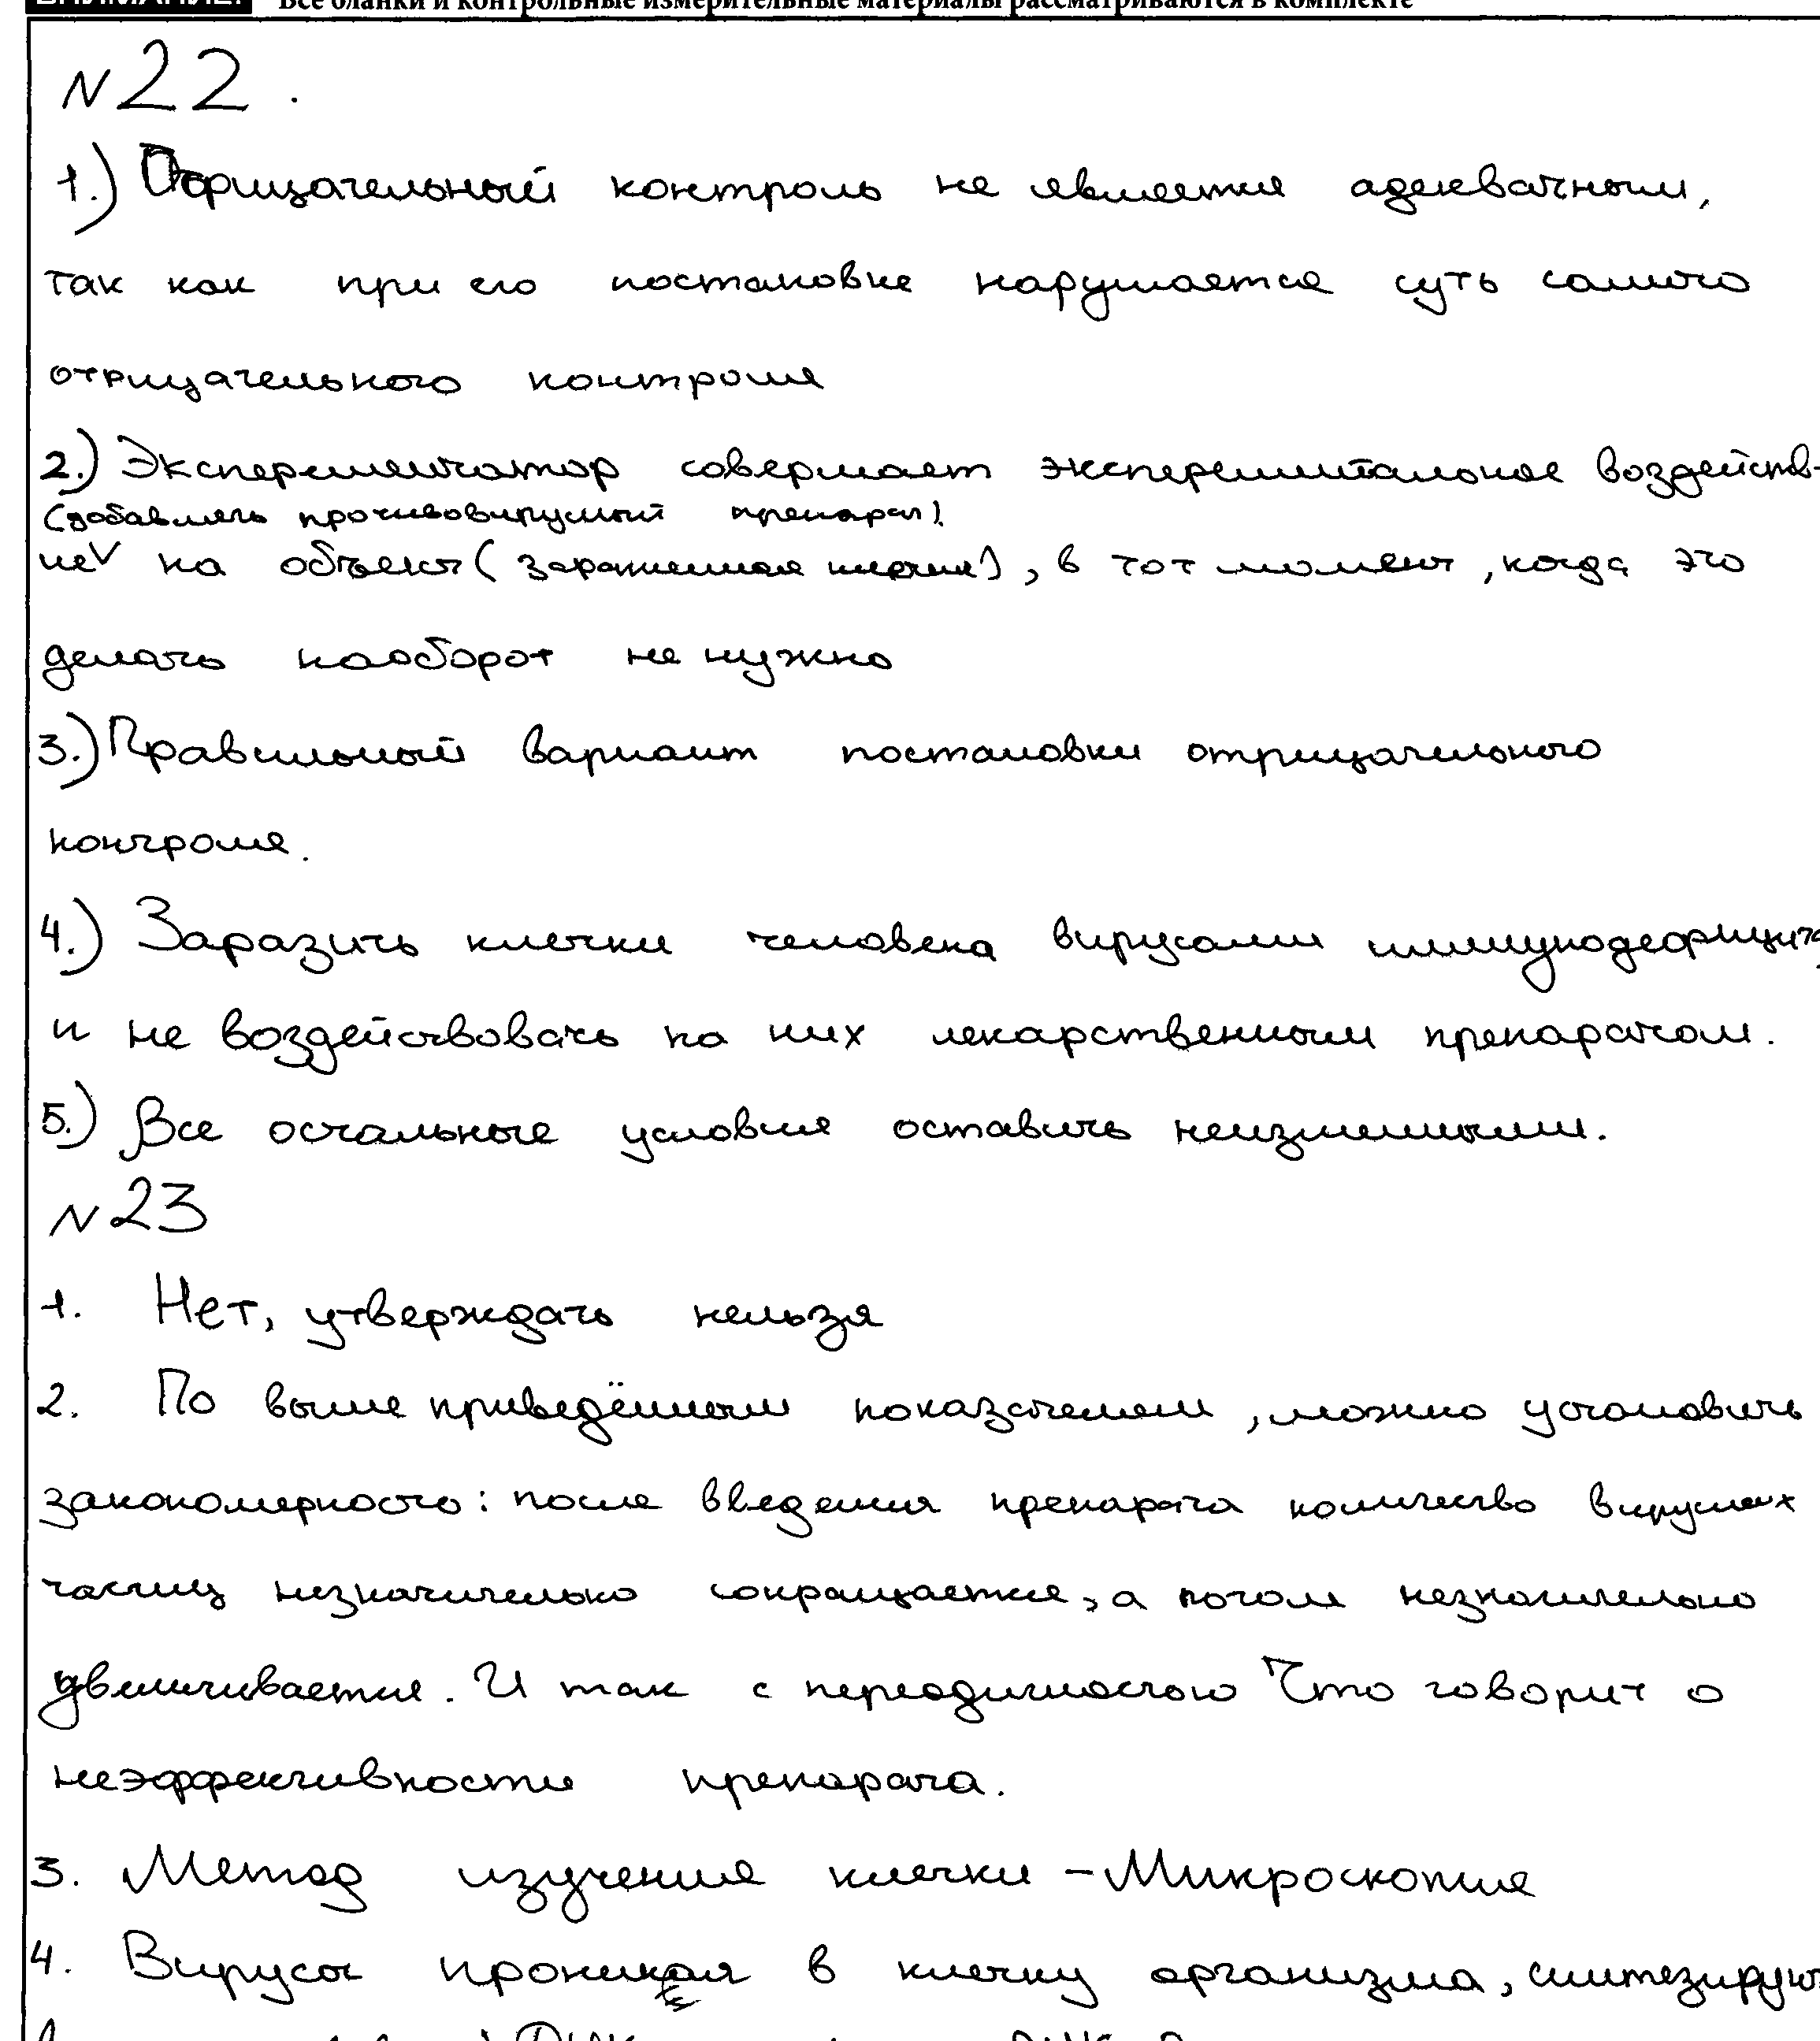 ВНИМАНИЕ! Все бланки и контрольные измерительные материалы рассматриваются в комплекте
№22.
1.) Отрицательный контроль не является адекватным,
так как при его постановке нарушается суть самого
отрицательного контроля
2.) Эксперементатор совершает эксперементальное воздейств-
(добавлять противовирусный препарат).
ие√ на объект (зараженная клетка), в тот момент, когда это
делать наоборот не нужно
3.) Правильный вариант постановки отрицательного
контроля.
4.) Заразить клетки человека вирусами иммунодефицита
и не воздействовать на них лекарственным препаратом.
5.) Все остальные условия оставить неизменными.
№23
1. Нет, утверждать нельзя
2. По выше приведённым показателем, можно установить
закономерность: после введения препарата количество вирусных
частиц незначительно сокращается, а потом незначительно
увеличивается. И так с переодичностью Что говорит о
неэффективности препарата.
3. Метод изучения клетки – Микроскопия
4. Вирусы проникая в клетку организма, синтезируют